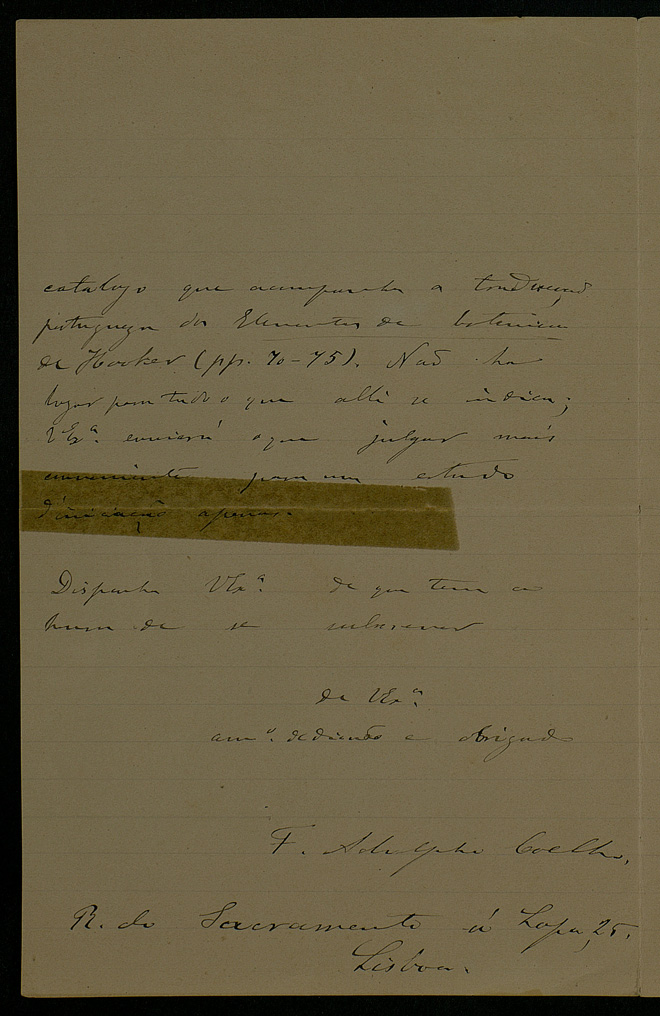 catalogo que acompanha a traducção
portugueza dos Elementos de botanica
de Hooker (pp. 70-75). Não ha
logar para tudo o que alli se indica;
V Ex.ª enviará o que julgar mais
conveniente para um estudo
d'iniciação apenas.
Disponha V Ex.ª de quem tem a
honra de se subscrever
de V Ex.ª
am.º dedicado e obrigado
F. Adolpho Coelho.
R. do Sacramento á Lapa, 25.
Lisboa.